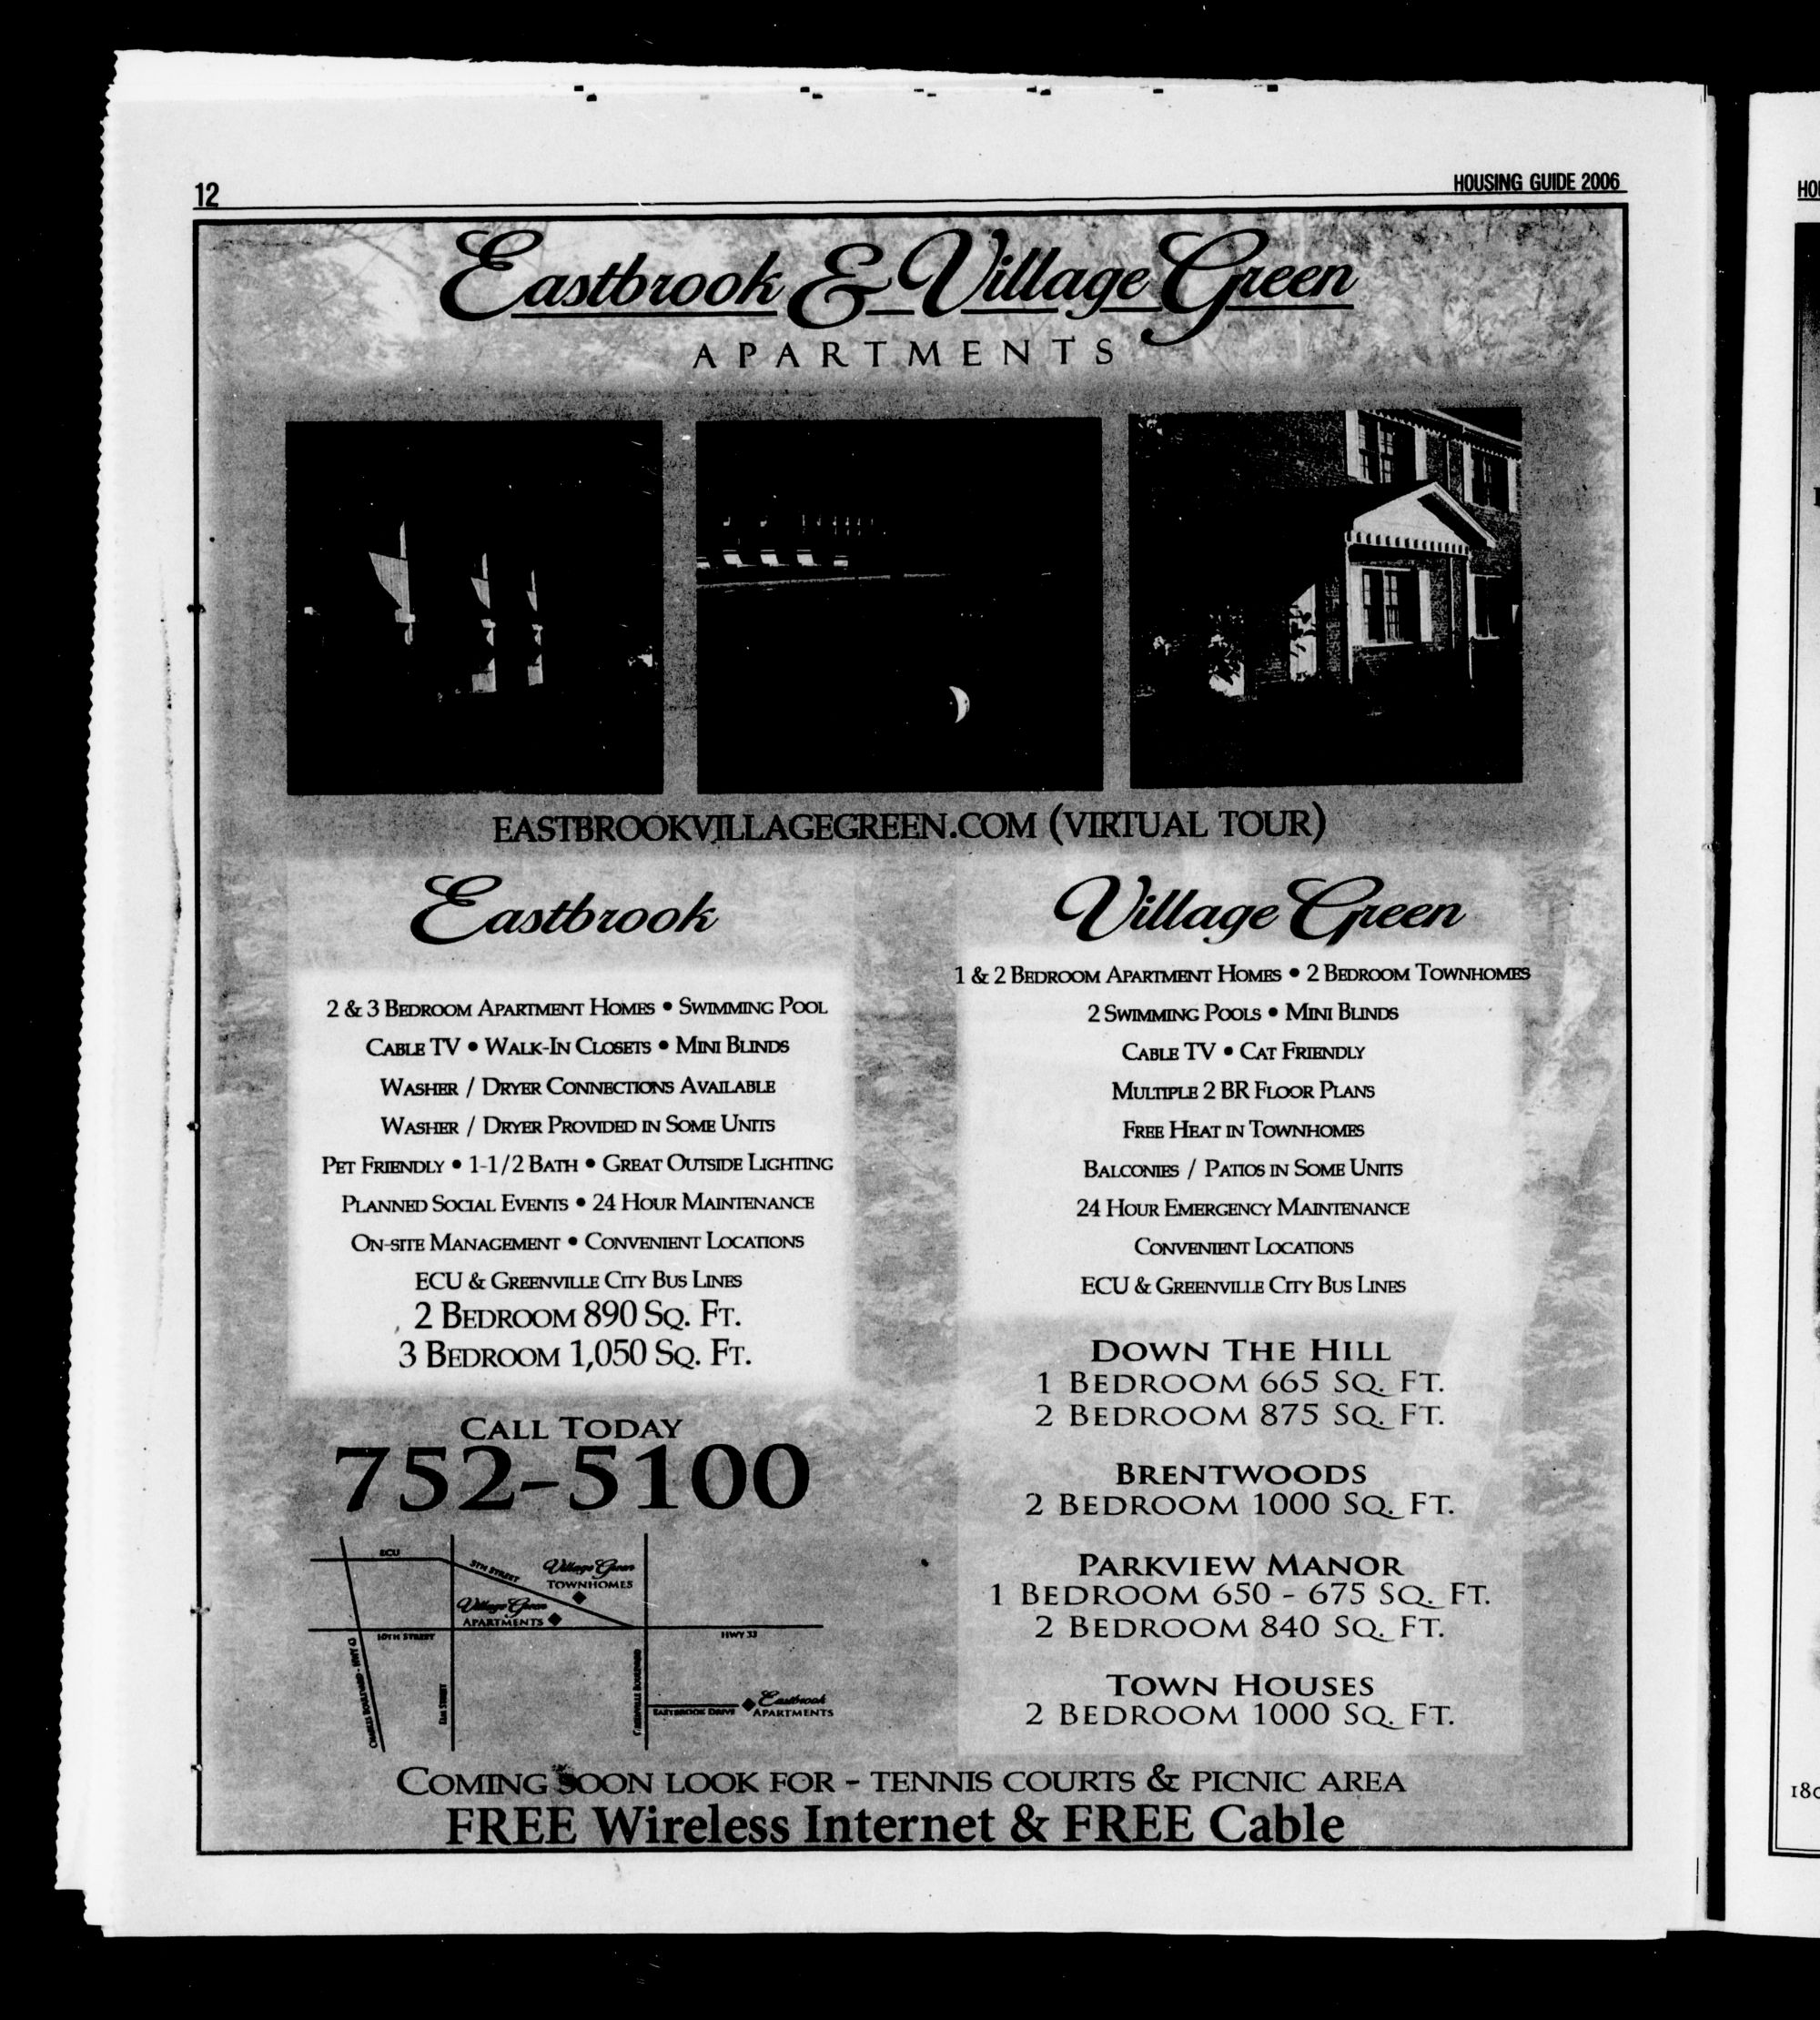 12
HOUSING GUIDE 2006
Eastbrook & Village Green
APARTMENTS
EASTBROOKVILLAGEGREEN.COM (VIRTUAL TOUR)
Eastbrook
2 & 3 BEDROOM APARTMENT HOMES • SWIMMING POOL
CABLE TV • WALK-IN CLOSETS • MINI BLINDS
WASHER / DRYER CONNECTIONS AVAILABLE
WASHER / DRYER PROVIDED IN SOME UNITS
PET FRIENDLY • 1-1/2 BATH • GREAT OUTSIDE LIGHTING
PLANNED SOCIAL EVENTS • 24 HOUR MAINTENANCE
ON-SITE MANAGEMENT • CONVENIENT LOCATIONS
ECU & GREENVILLE CITY BUS LINES
2 BEDROOM 890 SQ. FT.
3 BEDROOM 1,050 SQ. FT.
CALL TODAY
752-5100
ECU
5TH STREET
Village Green
TOWNHOMES
Village Green
APARTMENTS
10TH STREET
HWY 33
CHARLES BOULEVARD - HWY 43
ELM STREET
GREENVILLE BOULEVARD
EASTBROOK DRIVE
Eastbrook
APARTMENTS
Village Green
1 & 2 BEDROOM APARTMENT HOMES • 2 BEDROOM TOWNHOMES
2 SWIMMING POOLS • MINI BLINDS
CABLE TV • CAT FRIENDLY
MULTIPLE 2 BR FLOOR PLANS
FREE HEAT IN TOWNHOMES
BALCONIES / PATIOS IN SOME UNITS
24 HOUR EMERGENCY MAINTENANCE
CONVENIENT LOCATIONS
ECU & GREENVILLE CITY BUS LINES
DOWN THE HILL
1 BEDROOM 665 SQ. FT.
2 BEDROOM 875 SQ. FT.
BRENTWOODS
2 BEDROOM 1000 SQ. FT.
PARKVIEW MANOR
1 BEDROOM 650 - 675 SQ. FT.
2 BEDROOM 840 SQ. FT.
TOWN HOUSES
2 BEDROOM 1000 SQ. FT.
COMING SOON LOOK FOR - TENNIS COURTS & PICNIC AREA
FREE Wireless Internet & FREE Cable